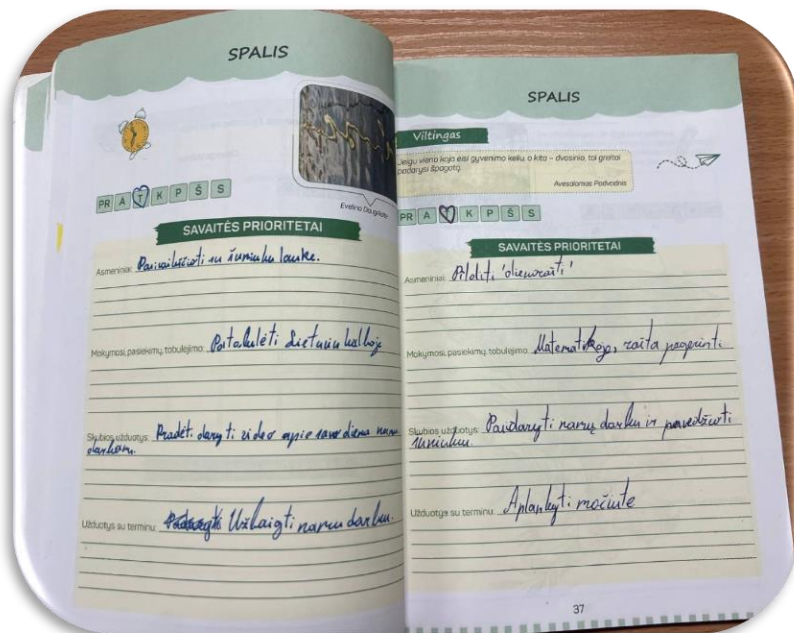 SPALIS
Evelina Daugėlaitė
PR A T K P Š S
SAVAITĖS PRIORITETAI
Asmeniniai: Pasivaikščioti su šuniuku lauke.
Mokymosi, pasiekimų, tobulėjimo: Patobulėti lietuvių kalboje
Skubios užduotys: Pradėti daryti video apie savo diena namu
darbam.
Užduotys su terminu: Užbaigti namu darbu.
SPALIS
Viltingas
Jeigu viena koja eisi gyvenimo keliu, o kita – dvasiniu, tai greitai
padarysi špagatą.
Avesalomas Podvodnis
PR A T K P Š S
SAVAITĖS PRIORITETAI
Asmeniniai: Pildīti 'dienorašti'
Mokymosi, pasiekimų, tobulėjimo: Matematikoje, rašta pagerinti
Skubios užduotys: Padaryti namų darbu ir pavedžioti
šuniuku.
Užduotys su terminu: Aplankyti močiute
37